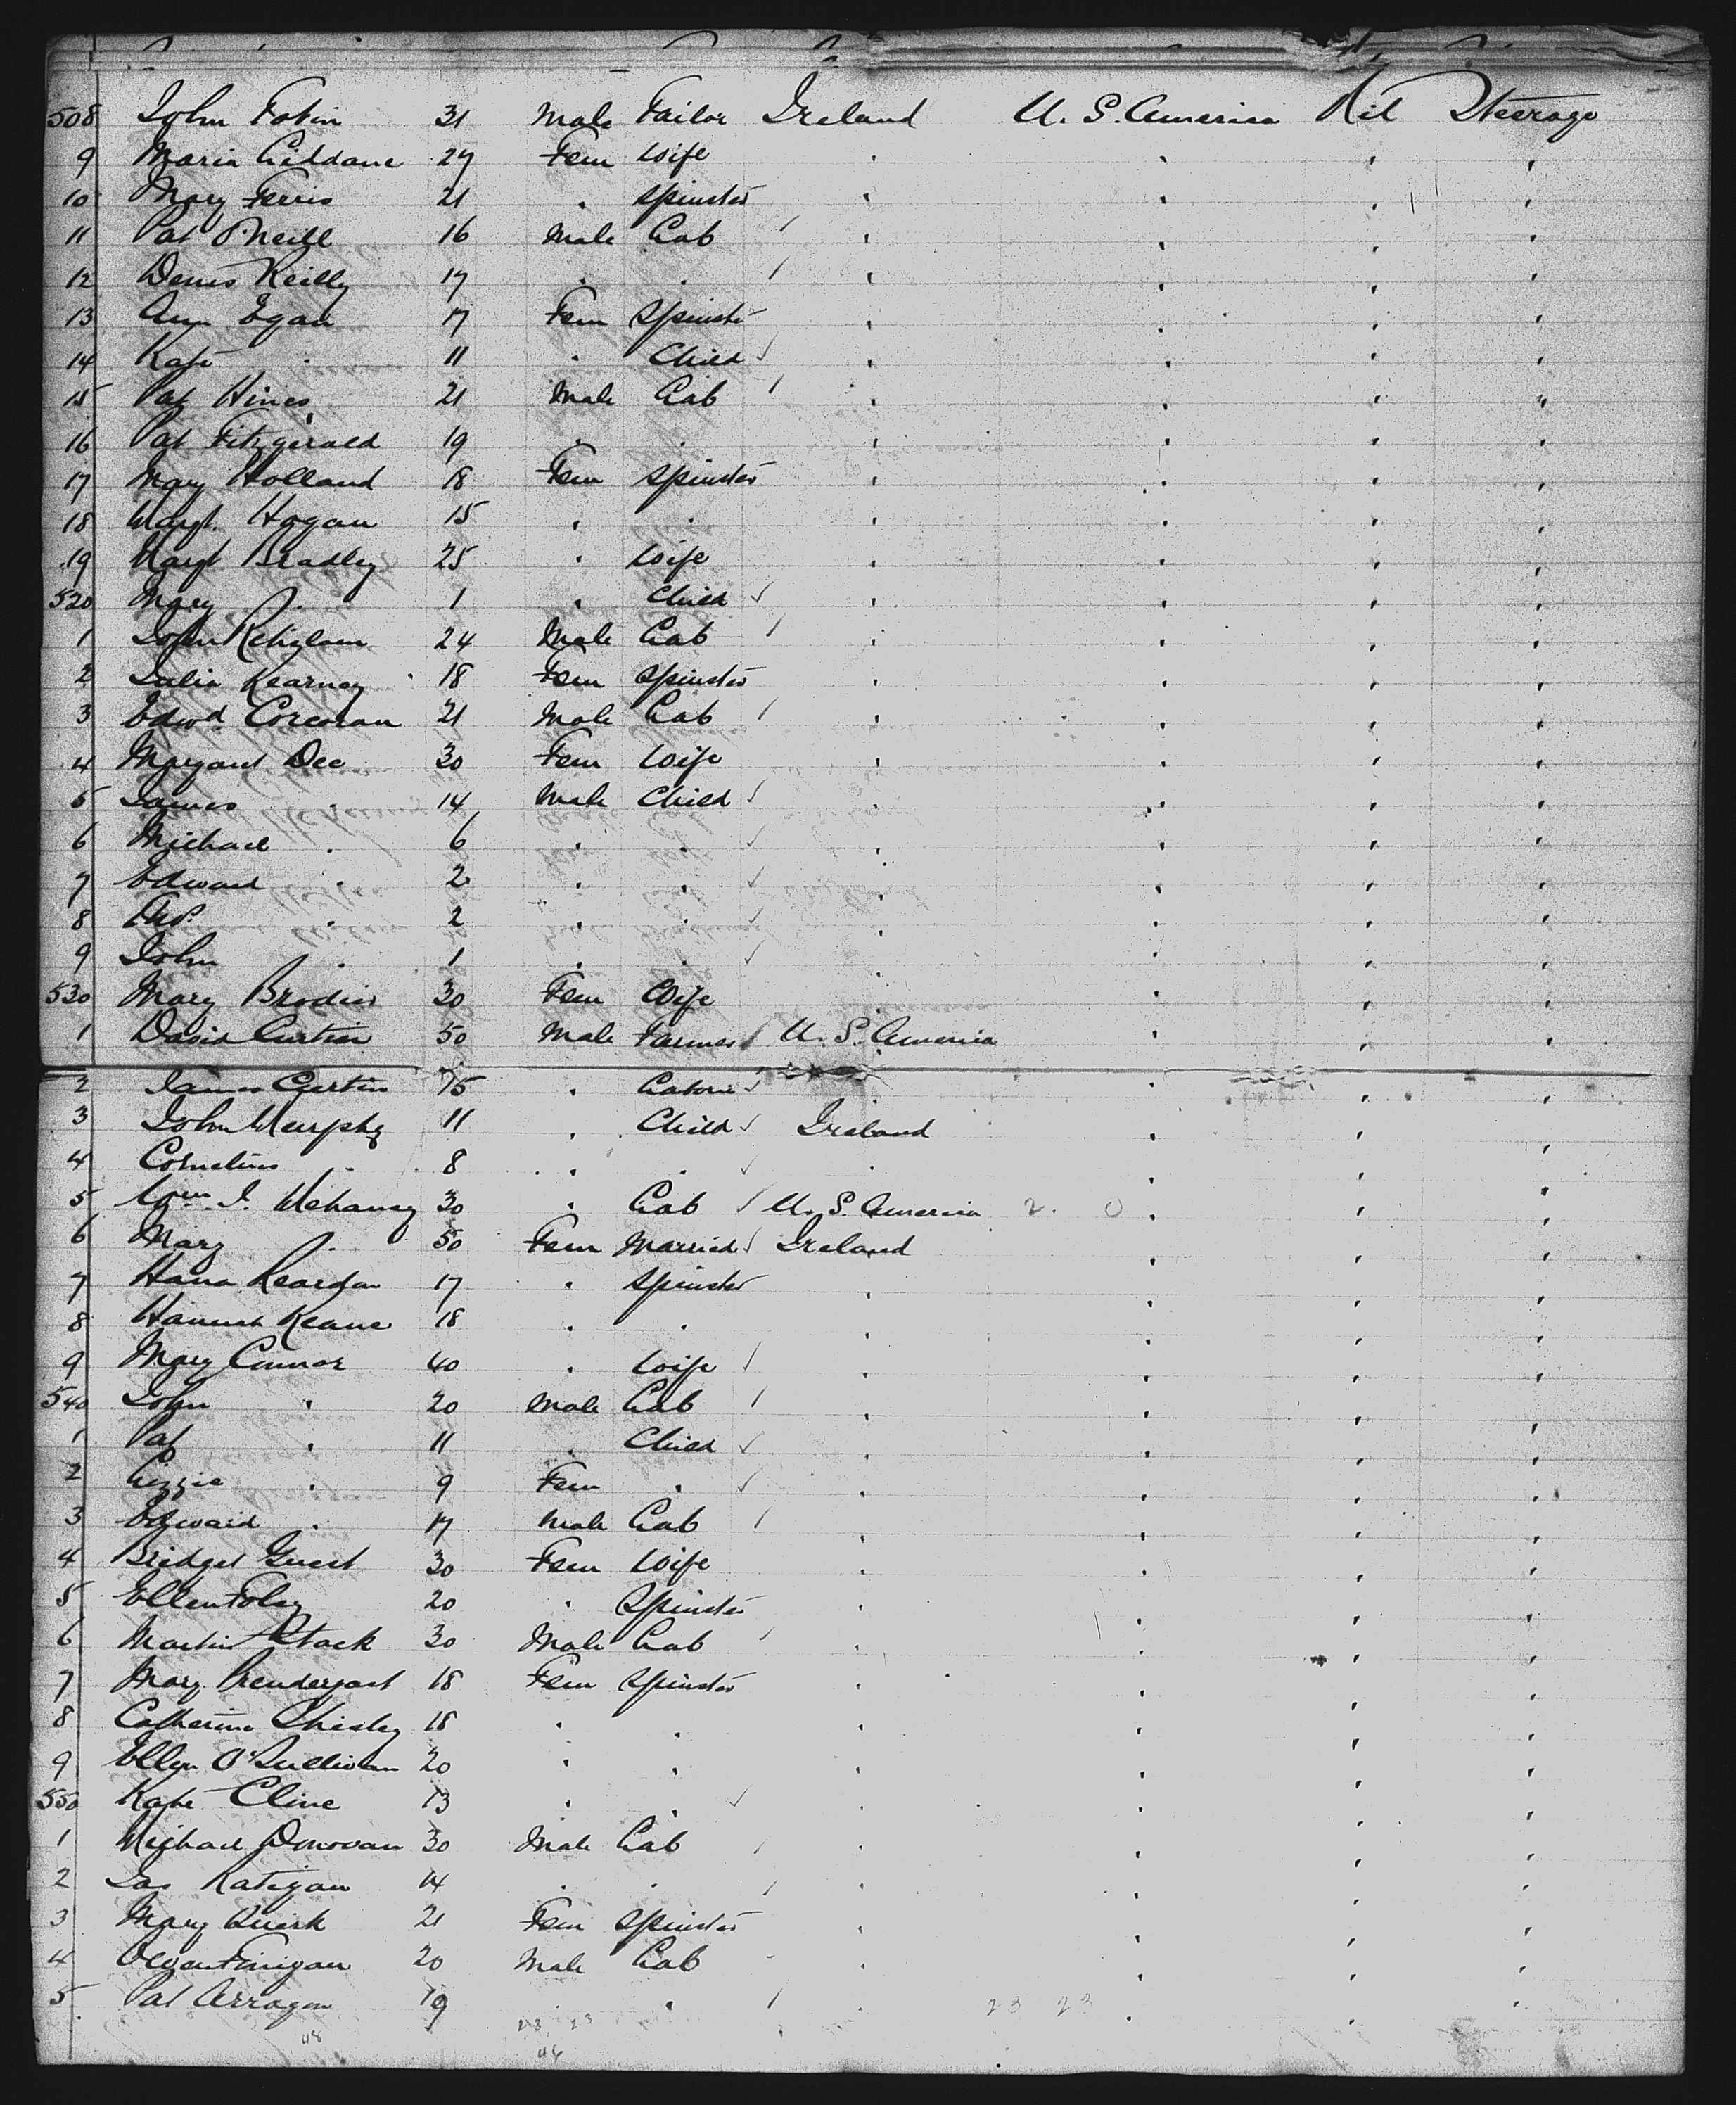 508 John Tobin 31 Male Tailor Ireland U. S. America Nil Steerage
9 Maria Lildane 27 Fem Wife " " " "
10 Mary Ferris 21 " Spinster " " " "
11 Pat O'Neill 16 Male Lab " " " "
12 Denis Reilly 17 " " " " " "
13 Ann Egan 17 Fem Spinster " " " "
14 Kate " 11 " Child " " " "
15 Pat Hines 21 Male Lab " " " "
16 Pat Fitzgerald 19 " " " " " "
17 Mary Holland 18 Fem Spinster " " " "
18 Margt. Hogan 15 " " " " " "
19 Margt Bradley 25 " Wife " " " "
520 Mary " 1 " Child " " " "
1 John 24 Male Lab " " " "
2 Julia Kearney 18 Fem Spinster " " " "
3 Edwd Corcoran 21 Male Lab " " " "
4 Margaret Dee 30 Fem Wife " " " "
5 James " 14 Male Child " " " "
6 Michael " 6 " " " " " "
7 Edward " 2 " " " " " "
8 " 2 " " " " " "
9 John " 1 " " " " " "
530 Mary Brodier 30 Fem Wife " " " "
1 David Curtin 50 Male Farmer U. S. America " " "
2 James Curtin 75 " Labour " " "
3 John Murphy 11 " Child Ireland " " "
4 Cornelius " 8 " " " " " "
5 Wm. J. Mehaney 30 " Lab U. S. America " " "
6 Mary " 50 Fem Married Ireland " " "
7 Hana Reardon 17 " Spinster " " " "
8 Hannah Keane 18 " " " " " "
9 Mary Connor 40 " Wife " " " "
540 John " 20 Male Lab " " " "
1 Pat " 11 " Child " " " "
2 Lizzie " 9 Fem " " " " "
3 Edward " 17 Male Lab " " " "
4 Bridget Guest 30 Fem Wife " " " "
5 Ellen Foley 20 " Spinster " " " "
6 Martin Stack 30 Male Lab " " " "
7 Mary Prendergast 18 Fem Spinster " " " "
8 Catherine Shisley 18 " " " " " "
9 Ellen O'Sullivan 20 " " " " " "
550 Kate Cline 13 " " " " " "
1 Michael Donovan 30 Male Lab " " " "
2 Jas Ratigan 14 " " " " " "
3 Mary Quirk 21 Fem Spinster " " " "
4 Owen Finigan 20 Male Lab " " " "
5 Pat Arragon 19 " " " 23 23 " " "
48 23 23
46